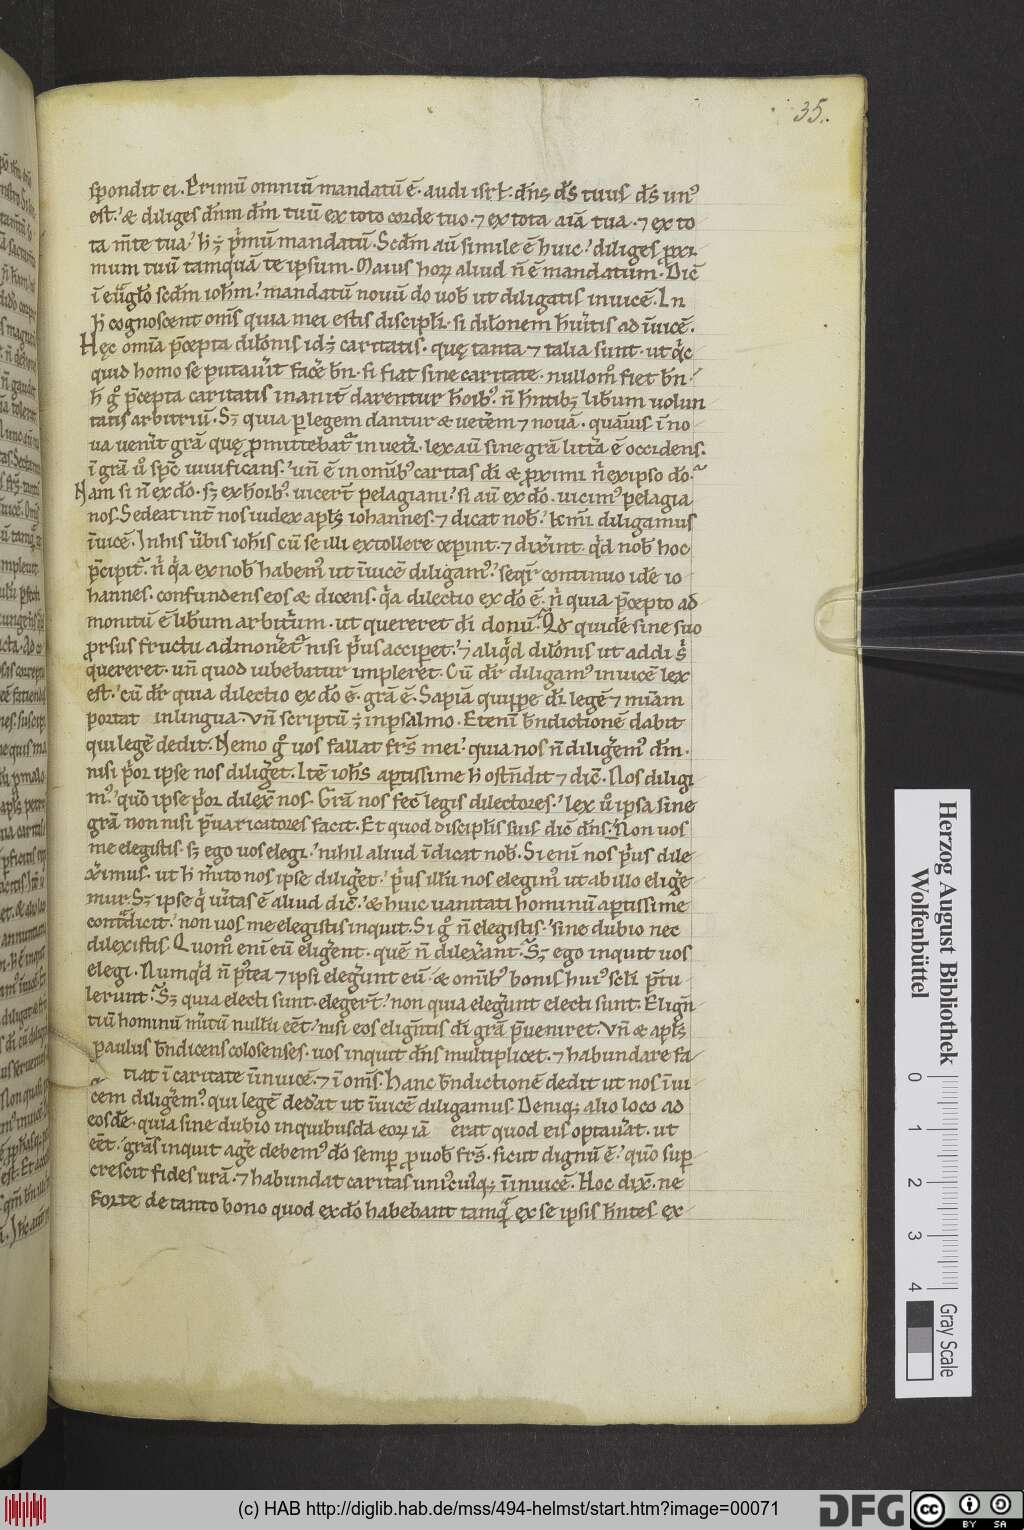 35.
spondit ei. Primū omniū mandatū ē. audi isrł. dñs dš tuus dš un᷒
est. & diliges dñm dm̄ tuū ex toto corde tuo. ⁊ ex tota aīā tua. ⁊ ex to
ta m̄te tua. h̄ ÷ p̄mū mandatū. Scdm̄ aū simile ē huic. diliges prxi
mum tuū tamquā te ipsum. Maius hoꝝ aliud ñ ē mandatum. Dic̄
ī eūgło scdm̄ ioh̄m. mandatū nouū do uob̄ ut diligatis inuicē. In
h̄ cognoscent om̄s quia mei estis discipłi. si dił̄onem h̄ūitis ad īuicē.
Hęc om̄ia p̄cepta dił̄onis idÿ caritatis. quę tanta ⁊ talia sunt. ut q̇c
quid homo se putau̇it fac̄e b̄n. si fiat sine caritate. nullom̊ fiet b̄n.
h̄ g̊ p̄cepta caritatis inanit̄ darentur h̄oib᷒. ñ h̄ntib; lib̄um uolun
tatis arbitriū. Sꝫ quia p legem dantur & uet̄em ⁊ nouā. quāuis ī no
ua uen̄it grā quę pmittebat̄ in uet̄i. lex aū sine grā litt̄a ē occidens.
ī grā u̇̊ sp̄c uiuificans. un̄ ē in om̄ib᷒ caritas di & proximi ñ ex ipso do.
Nam si ñ ex do. sꝫ ex h̄oib᷒. uicert̄ pelagiani. si aū ex do. uicim᷒ pelagia
nos. Sedeat int̄ nos iudex apłs iohannes. ⁊ dicat nob̄. kmi diligamus
īuicē. In his ūbis ioh̄is cū se illi extollere cœperint. ⁊ dix̄int. q̇d nob̄ hoc
p̄cipit̄. ñ q̇a ex nob̄ habem᷒ ut īuicē diligam᷒. seqr̄ continuo idē io
hannes. confundens eos & dicens. q̇a dilectio ex do ē. ñ quia p̄cepto ad
monitū ē lib̄um arbitrium. ut quereret di donū. Qd̄ quidē sine suo
prsus fructu admoner̄et̄ nisi p̄us accipet. aliq̇d dił̄onis ut addi s̄
quereret. un̄ quod iubebatur impleret. Cū dr̄ diligam᷒ inuicē lex
est. cū dr̄ quia dilectio ex do ē. grā ē. Sapiā quippe di legē ⁊ miām
portat in lingua. Vn̄ scriptū ÷ in psalmo. Etenī b̄ndictionē dabit
qui legē dedit. Nemo g̊ uos fallat frs̄ mei. quia nos ñ diliger̄em᷒ dm̄.
nisi p̄or ipse nos diliget̄. Itē ioh̄s aptissime h̄ ostn̄dit ⁊ dic̄. Nos diligi
m᷒. quō ipse p̄or dilex̄ nos. Grā nos fec̄ legis dilectores. lex u̇̊ ipsa sine
grā non nisi p̄uaricatores facit. Et quod discipłis suis dic̄ dñs. Non uos
me elegistis. sꝫ ego uos elegi. nihil aliud īdicat nob̄. Si enī nos p̄us dile
x̄imus. ut h̄ m̄ito nos ipse diliget̄. p̄us illū nos elegim᷒ ut ab illo eliḡe
mur. Sꝫ ipse q̇ u̇itas ē aliud dic̄. & huic uanitati hominū aptissime
cont̄dicit. non uos me elegistis inquit. Si g̊ ñ elegistis. sine dubio nec
dilexistis. Quom̊ enī eū eliḡent. quē ñ dilex̄ant. Sꝫ ego inquit uos
elegi. Numq̇d ñ p᷒tea ⁊ ipsi eleḡunt eū. & om̄ib᷒ bonis hui᷒ scłi p̄tu
lerunt. Sꝫ quia electi sunt. elegert̄. non quia eleḡunt electi sunt. Elign̄
tiū hominū m̄itū nullū eēt. nisi eos elign̄tis di grā p̄ueniret. Vn̄ & apłs
paulus b̄ndicens colosenses. uos inquit dñs multiplicet. ⁊ habundare fa
tiat ī caritate īinuicē. ⁊ ī om̄s. Hanc b̄ndictionē dedit ut nos īui
cem diliger̄em᷒. qui legē ded̄at ut īuicē diligamus. Deniq; alio loco ad
eosdē. quia sine dubio in quibusdā eoꝝ iā erat quod eis optau̇at. ut
eēt. grās inquit aḡe debem᷒ do semp p uob̄ frs̄. sicut dignū ē. quō sup
crescit fides urā. ⁊ habundat caritas uni᷒cui᷒q; īinuicē. Hoc dix̄. ne
forte de tanto bono quod ęx do habebant tamq̄ ęx se ipsis h̄ntes ęx
Herzog August Bibliothek
Wolfenbüttel
0 1 2 3 4
Gray Scale
(c) HAB http://diglib.hab.de/mss/494-helmst/start.htm?image=00071
DFG
cc BY SA